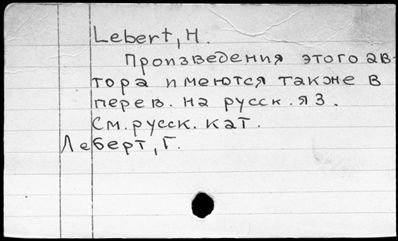 Lebert, H.
Произведения этого ав-
тора имеются также в
перев. на русск. яз.
См. русск. кат.
Леберт, Г.